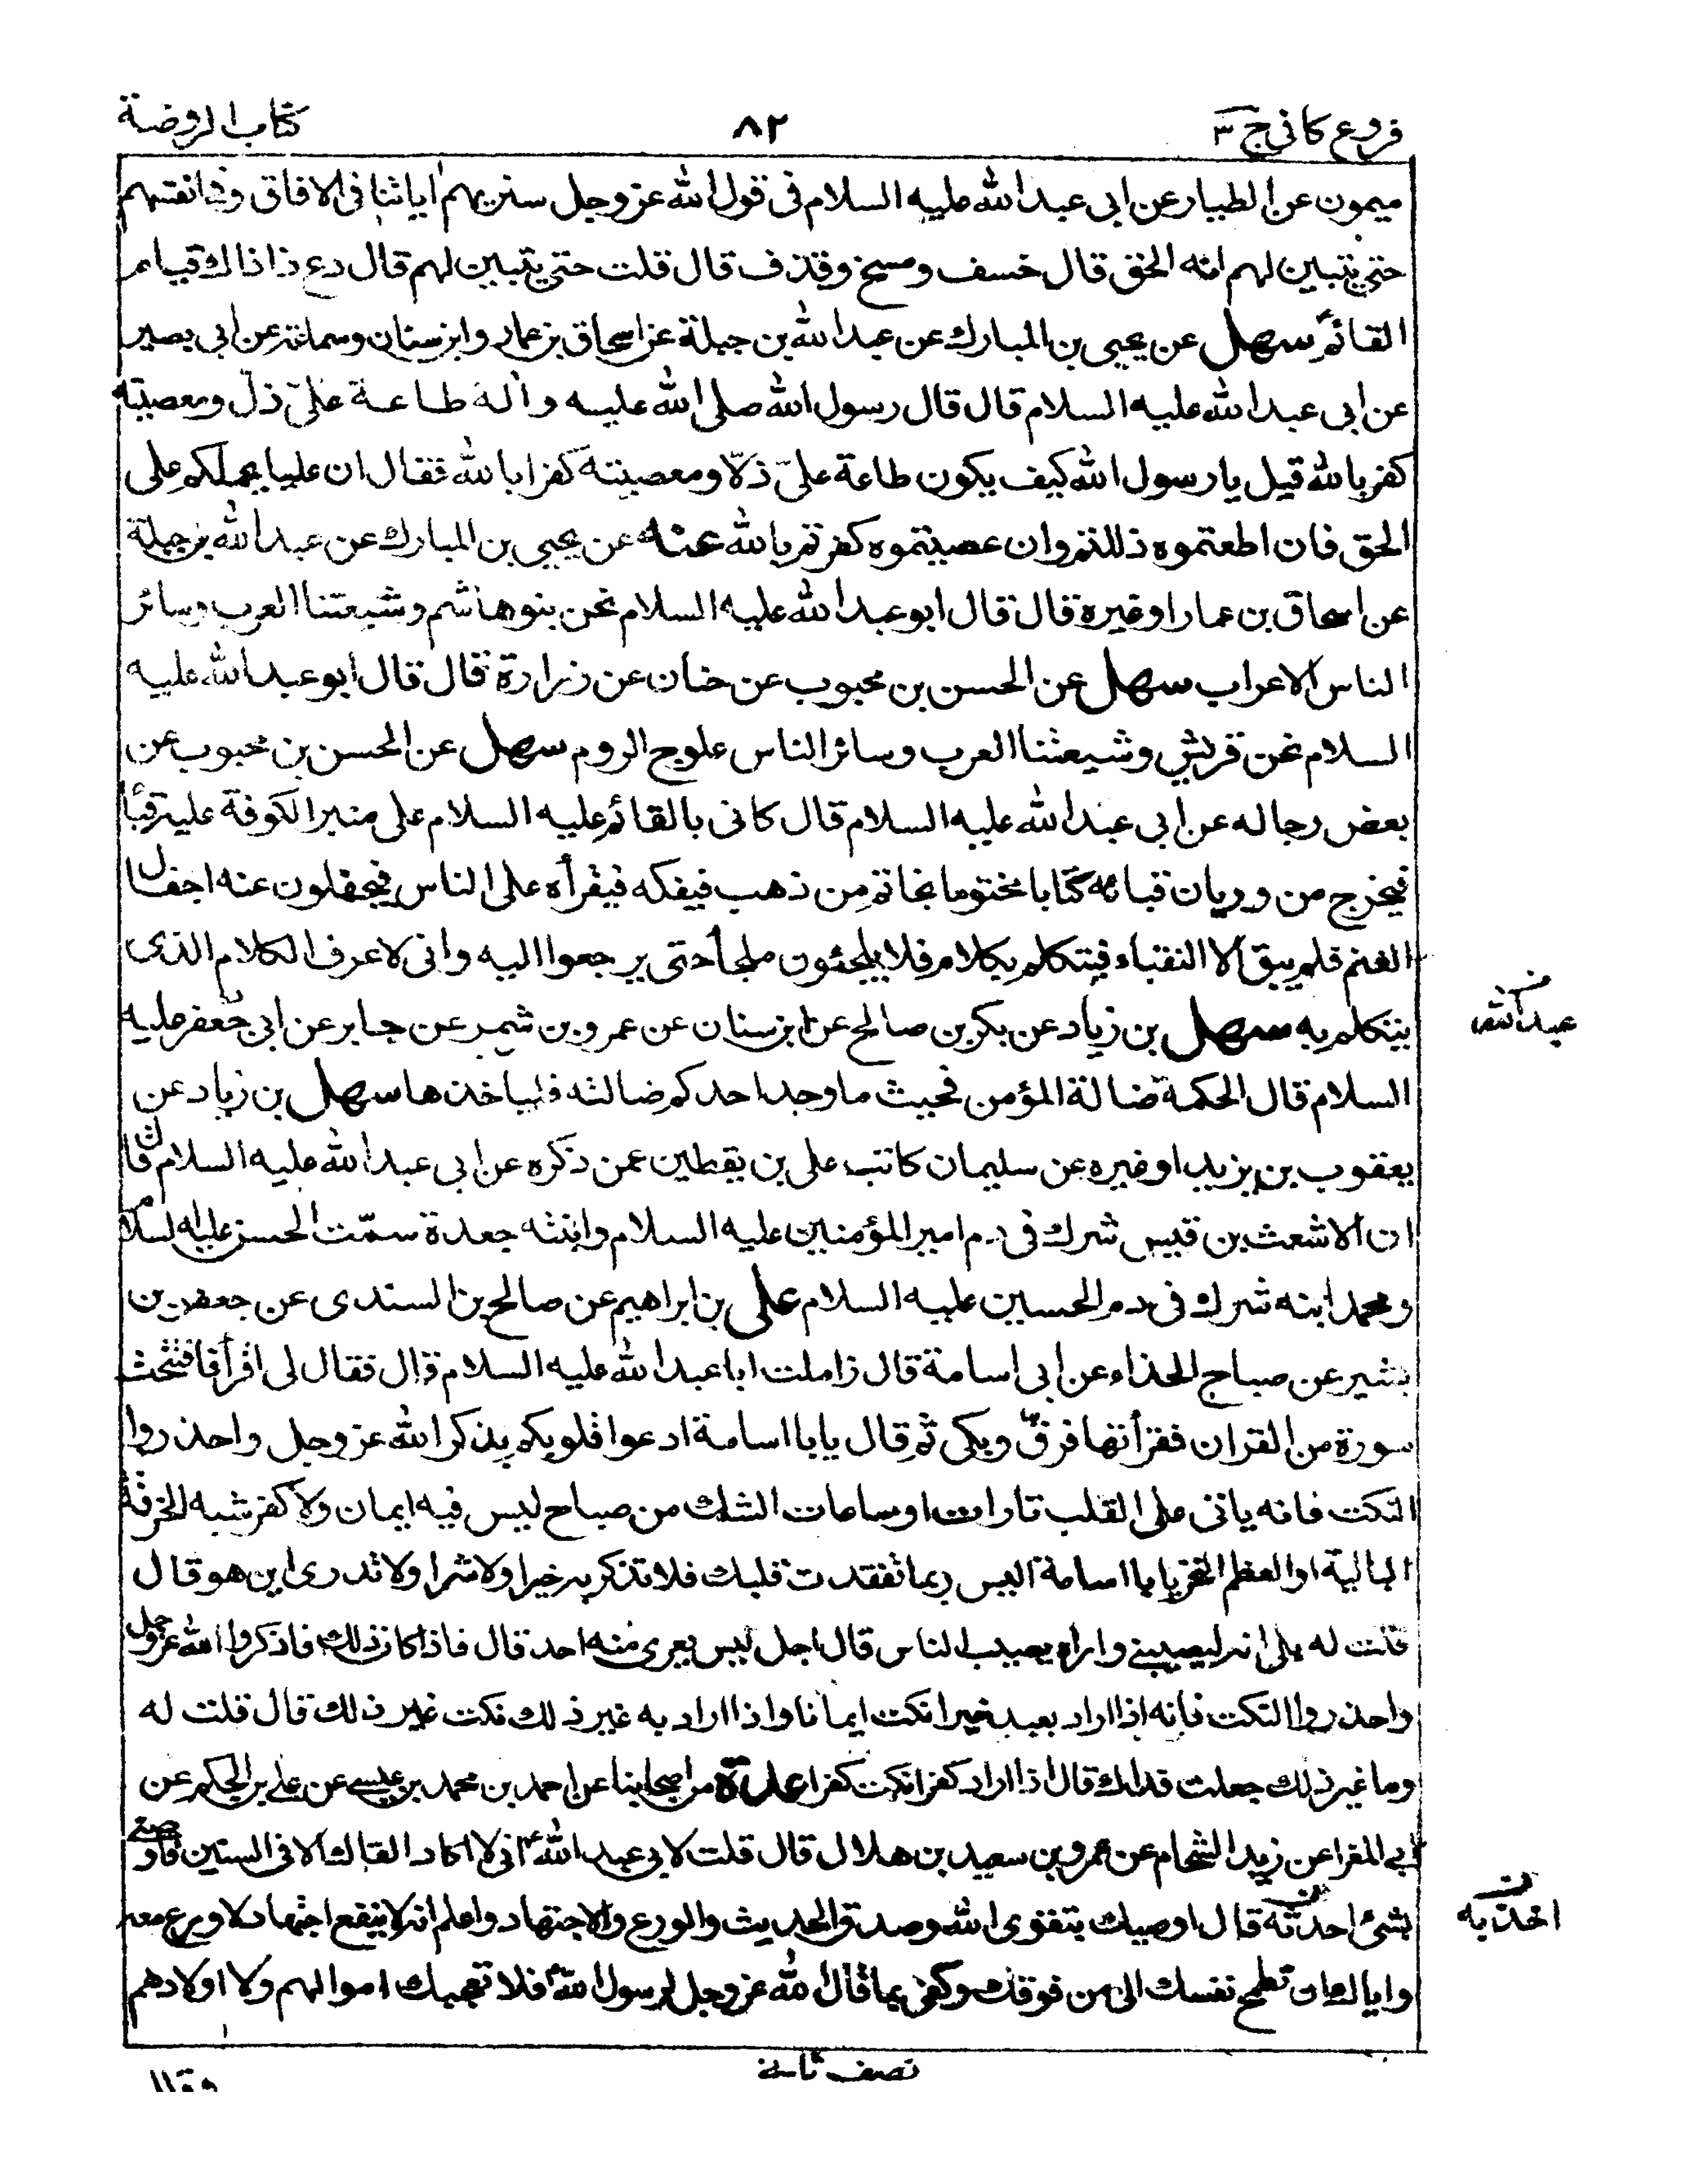 فروع كافى ج ٣
٨٢
كتاب الروضة
ميمون عن الطيار عن ابى عبد الله عليه السلام فى قول الله عز وجل سنريهم اياتنا فى الافاق وفى انفسهم
حتى يتبين لهم انه الحق قال خسف ومسخ وقذف قال قلت حتى يتبين لهم قال دع ذا ذاك قيام
القائم سهل عن يحيى بن المبارك عن عبد الله بن جبلة عن اسحاق بن عمار وابن سنان وسماعة عن ابى بصير
عن ابى عبد الله عليه السلام قال قال رسول الله صلى الله عليه واله طاعة علىّ ذلّ ومعصيته
كفر بالله قيل يا رسول الله كيف يكون طاعة علىّ ذلّا ومعصيته كفرا بالله فقال ان عليا يحملكم على
الحق فان اطعتموه ذللتم وان عصيتموه كفرتم بالله عنه عن يحيى بن المبارك عن عبد الله بن جبلة
عن اسحاق بن عمار او غيره قال قال ابو عبد الله عليه السلام نحن بنو هاشم وشيعتنا العرب وسائر
الناس الاعراب سهل عن الحسن بن محبوب عن حنان عن زرارة قال قال ابو عبد الله عليه
السلام نحن قريش وشيعتنا العرب وسائر الناس علوج الروم سهل عن الحسن بن محبوب عن
بعض رجاله عن ابى عبد الله عليه السلام قال كانى بالقائم عليه السلام على منبر الكوفة عليه قبا
فيخرج من وريان قبائه كتابا مختوما بخاتم من ذهب فيفكه فيقرأه على الناس فيجفلون عنه اجفال
الغنم فلم يبق الا النقباء فيتكلم بكلام فلا يلجئون ملجأ حتى يرجعوا اليه وانى لاعرف الكلام الذى
يتكلم به سهل بن زياد عن بكر بن صالح عن ابن سنان عن عمرو بن شمر عن جابر عن ابى جعفر عليه
السلام قال الحكمة ضالة المؤمن فحيث ما وجد احدكم ضالته فلياخذها سهل بن زياد عن
يعقوب بن يزيد او غيره عن سليمان كاتب على بن يقطين عمن ذكره عن ابى عبد الله عليه السلام قال
ان الاشعث بن قيس شرك فى دم امير المؤمنين عليه السلام وابنته جعدة سمّت الحسن عليه السلام
ومحمد ابنه شرك فى دم الحسين عليه السلام على بن ابراهيم عن صالح بن السندى عن جعفر بن
بشير عن صباح الحذاء عن ابى اسامة قال زاملت ابا عبد الله عليه السلام قال فقال لى اقرأ فافتتحت
سورة من القران فقرأتها فرقّ وبكى ثم قال يا با اسامة ادعوا قلوبكم بذكر الله عز وجل واحذروا
النكت فانه ياتى على القلب تارات او ساعات الشك من صباح ليس فيه ايمان ولا كفر شبه الخرقة
البالية او العظم النخر يا با اسامة اليس ربما تفقدت قلبك فلا تذكر به خيرا ولا شرا ولا تدرى اين هو قال
قلت له بلى انه ليصيبنى واراه يصيب الناس قال اجل ليس يعرى منه احد قال فاذا كان ذلك فاذكروا الله عز وجل
واحذروا النكت فانه اذا اراد بعبد خيرا نكت ايمانا واذا اراد به غير ذلك نكت غير ذلك قال قلت له
وما غير ذلك جعلت فداك قال اذا اراد كفرا نكت كفرا عدة من اصحابنا عن احمد بن محمد بن عيسى عن على بن الحكم عن
ابى المغرا عن زيد الشحام عن عمرو بن سعيد بن هلال قال قلت لابى عبد الله ع انى لا اكاد القاك الا فى السنين فاوصنى
بشئ احدثه قال اوصيك بتقوى الله وصدق الحديث والورع والاجتهاد واعلم انه لا ينفع اجتهاد لا ورع معه
واياك ان تطمح نفسك الى من فوقك وكفى بما قال الله عز وجل لرسول الله فلا تعجبك اموالهم ولا اولادهم
عبد الله
اخذ به